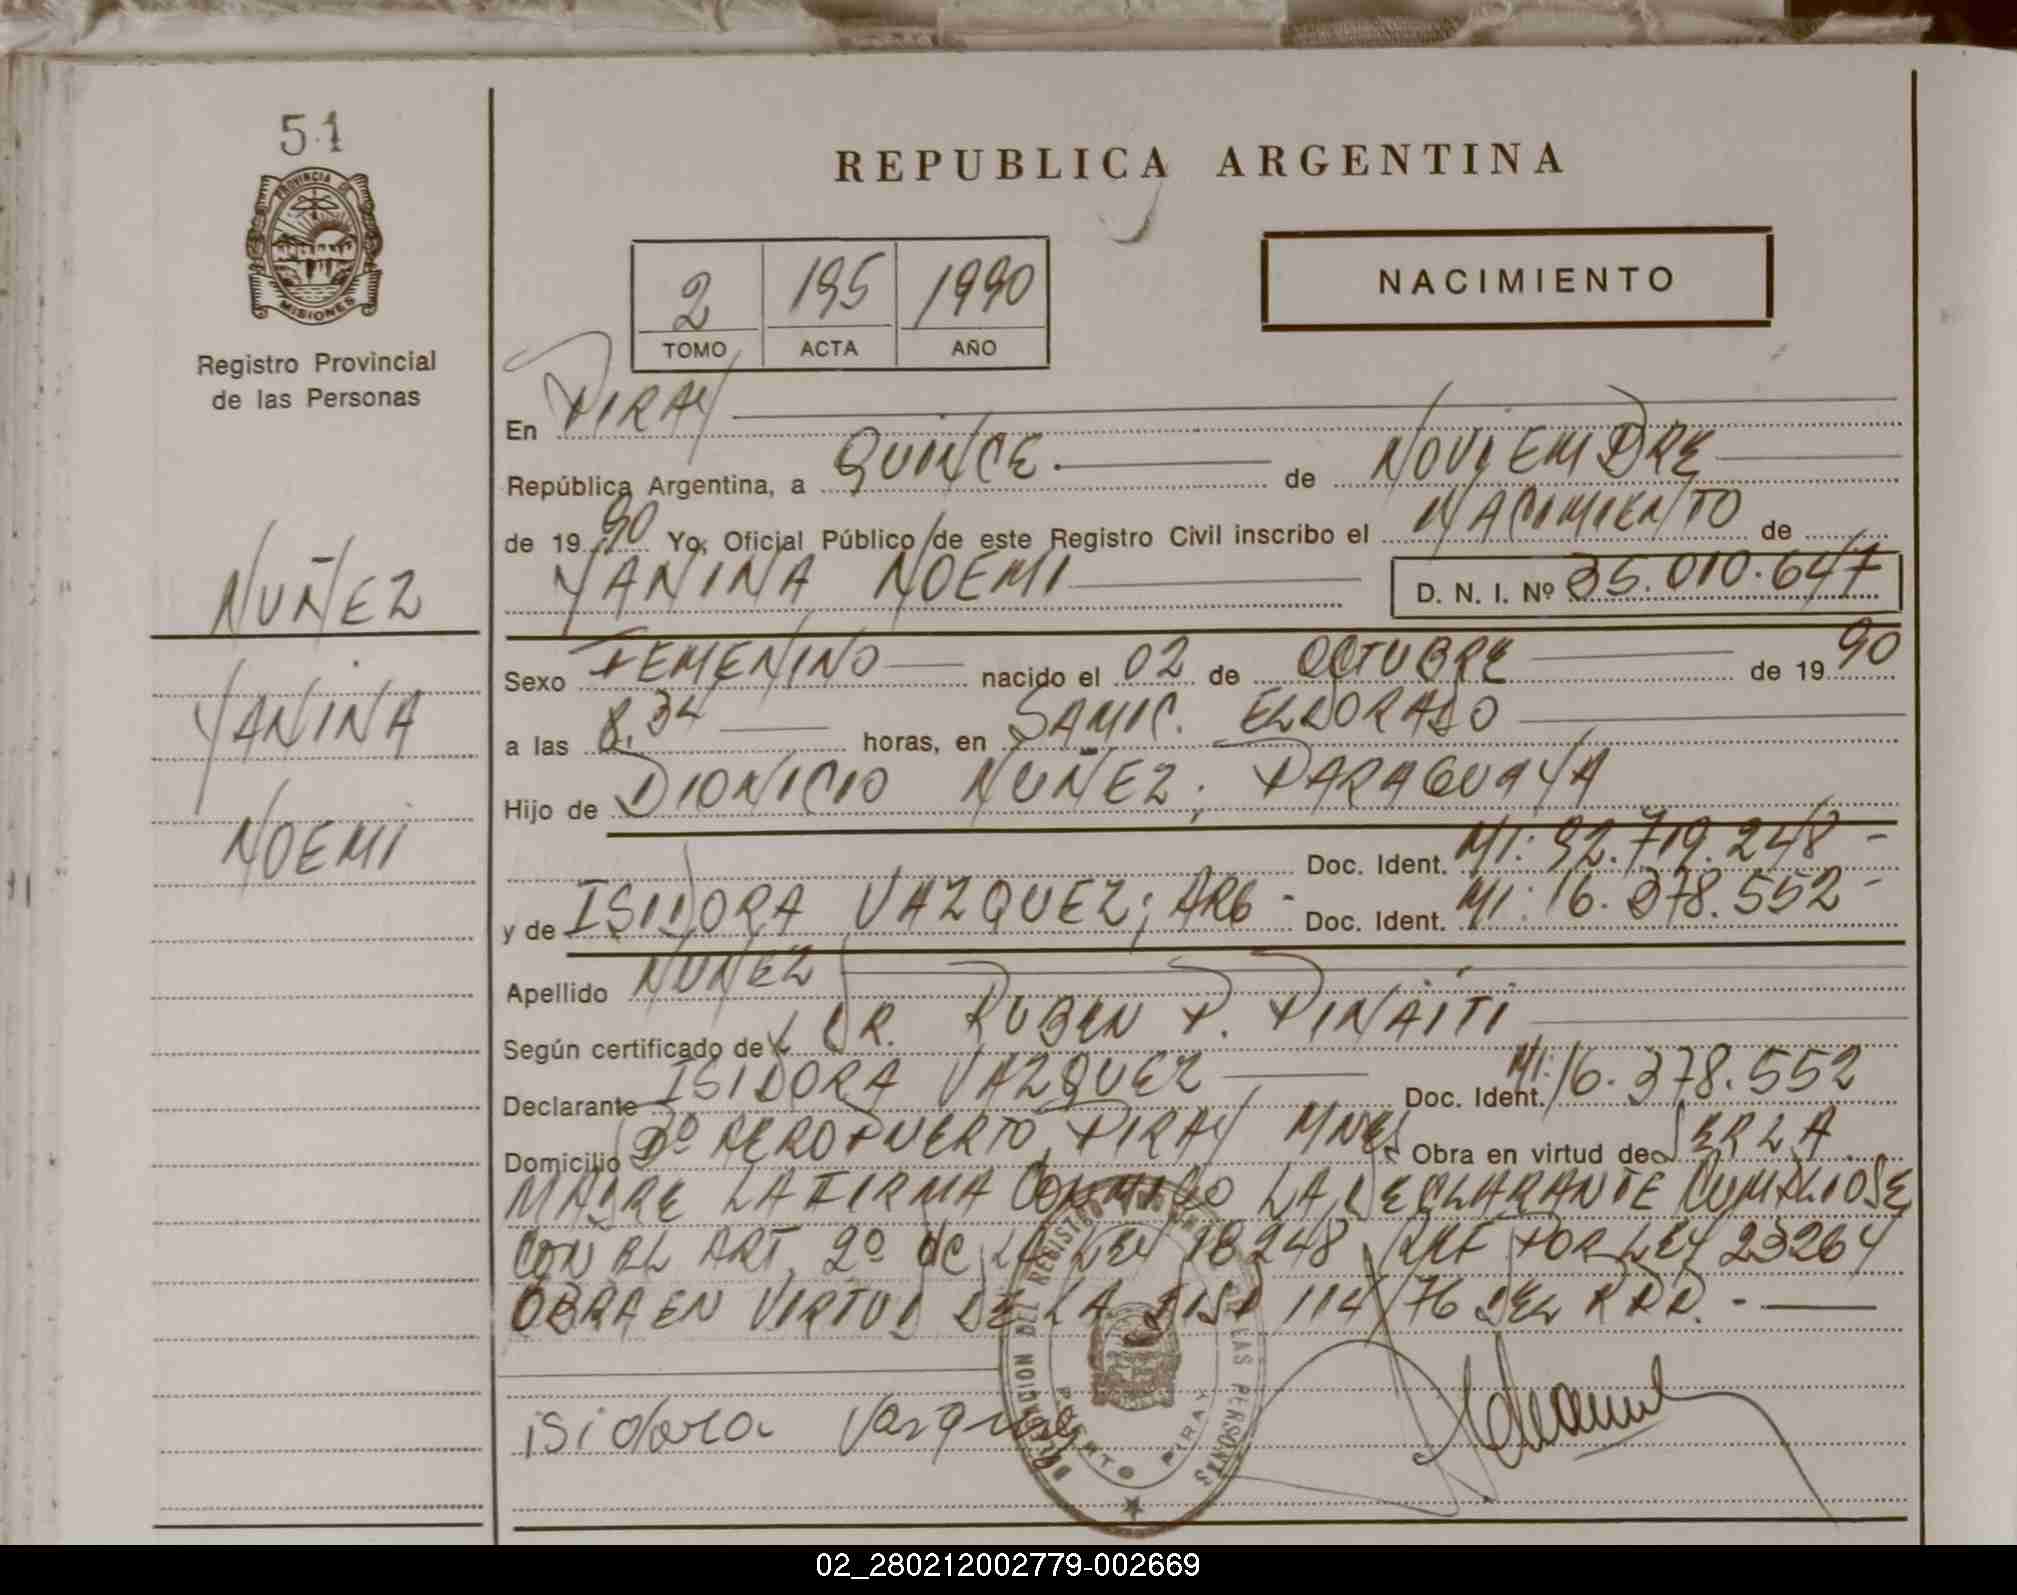 51
PROVINCIA DE
MISIONES
Registro Provincial
de las Personas
NUÑEZ
YANINA
NOEMI
REPUBLICA ARGENTINA
NACIMIENTO
2 195 1990
TOMO ACTA AÑO
En PIRAY
República Argentina, a QUINCE.- de NOVIEMBRE
de 1990 Yo, Oficial Público de este Registro Civil inscribo el NACIMIENTO de
YANINA NOEMI D. N. I. Nº 35.010.647
Sexo FEMENINO nacido el 02 de OCTUBRE de 1990
a las 8,34 horas, en SAMIC. ELDORADO
Hijo de DIONICIO NUÑEZ; PARAGUAYA
Doc. Ident. MI: 92.719.248-
y de ISIDORA VAZQUEZ; ARG- Doc. Ident. MI: 16.378.552-
Apellido NUÑEZ
Según certificado de DR. RUBEN P. PINAITI
Declarante ISIDORA VAZQUEZ Doc. Ident. MI: 16.378.552
Domicilio Bº AEROPUERTO PIRAY MNES Obra en virtud de SER LA
MADRE LA FIRMA CONMIGO LA DECLARANTE CUMPLIOSE
CON EL ART. 2º de LA LEY 18248 REF POR LEY 23264
OBRA EN VIRTUD DE LA DISP 114/76 DEL RPP.-
isidora Vasquez
DELEGACION DEL REGISTRO PROVINCIAL DE LAS PERSONAS
PUERTO PIRAY
02_280212002779-002669